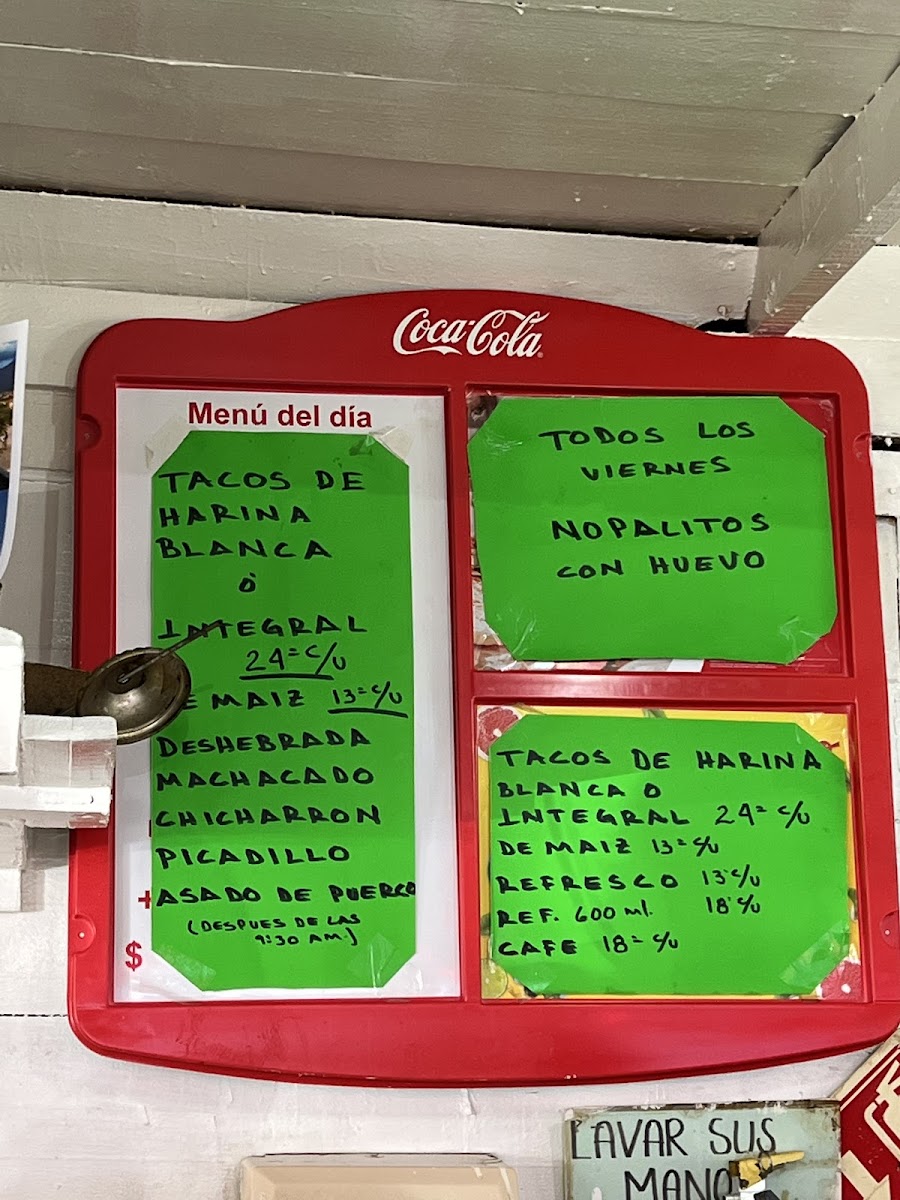 Coca-Cola
Menú del día
TACOS DE
HARINA
BLANCA
Ó
INTEGRAL
24= c/u
E MAIZ 13= c/u
DESHEBRADA
MACHACADO
CHICHARRON
PICADILLO
+ ASADO DE PUERCO
(DESPUES DE LAS
9:30 AM.)
$
TODOS LOS
VIERNES
NOPALITOS
CON HUEVO
TACOS DE HARINA
BLANCA O
INTEGRAL 24= c/u
DE MAIZ 13= c/u
REFRESCO 13= c/u
REF. 600 ml. 18= c/u
CAFE 18= c/u
LAVAR SUS
MANO